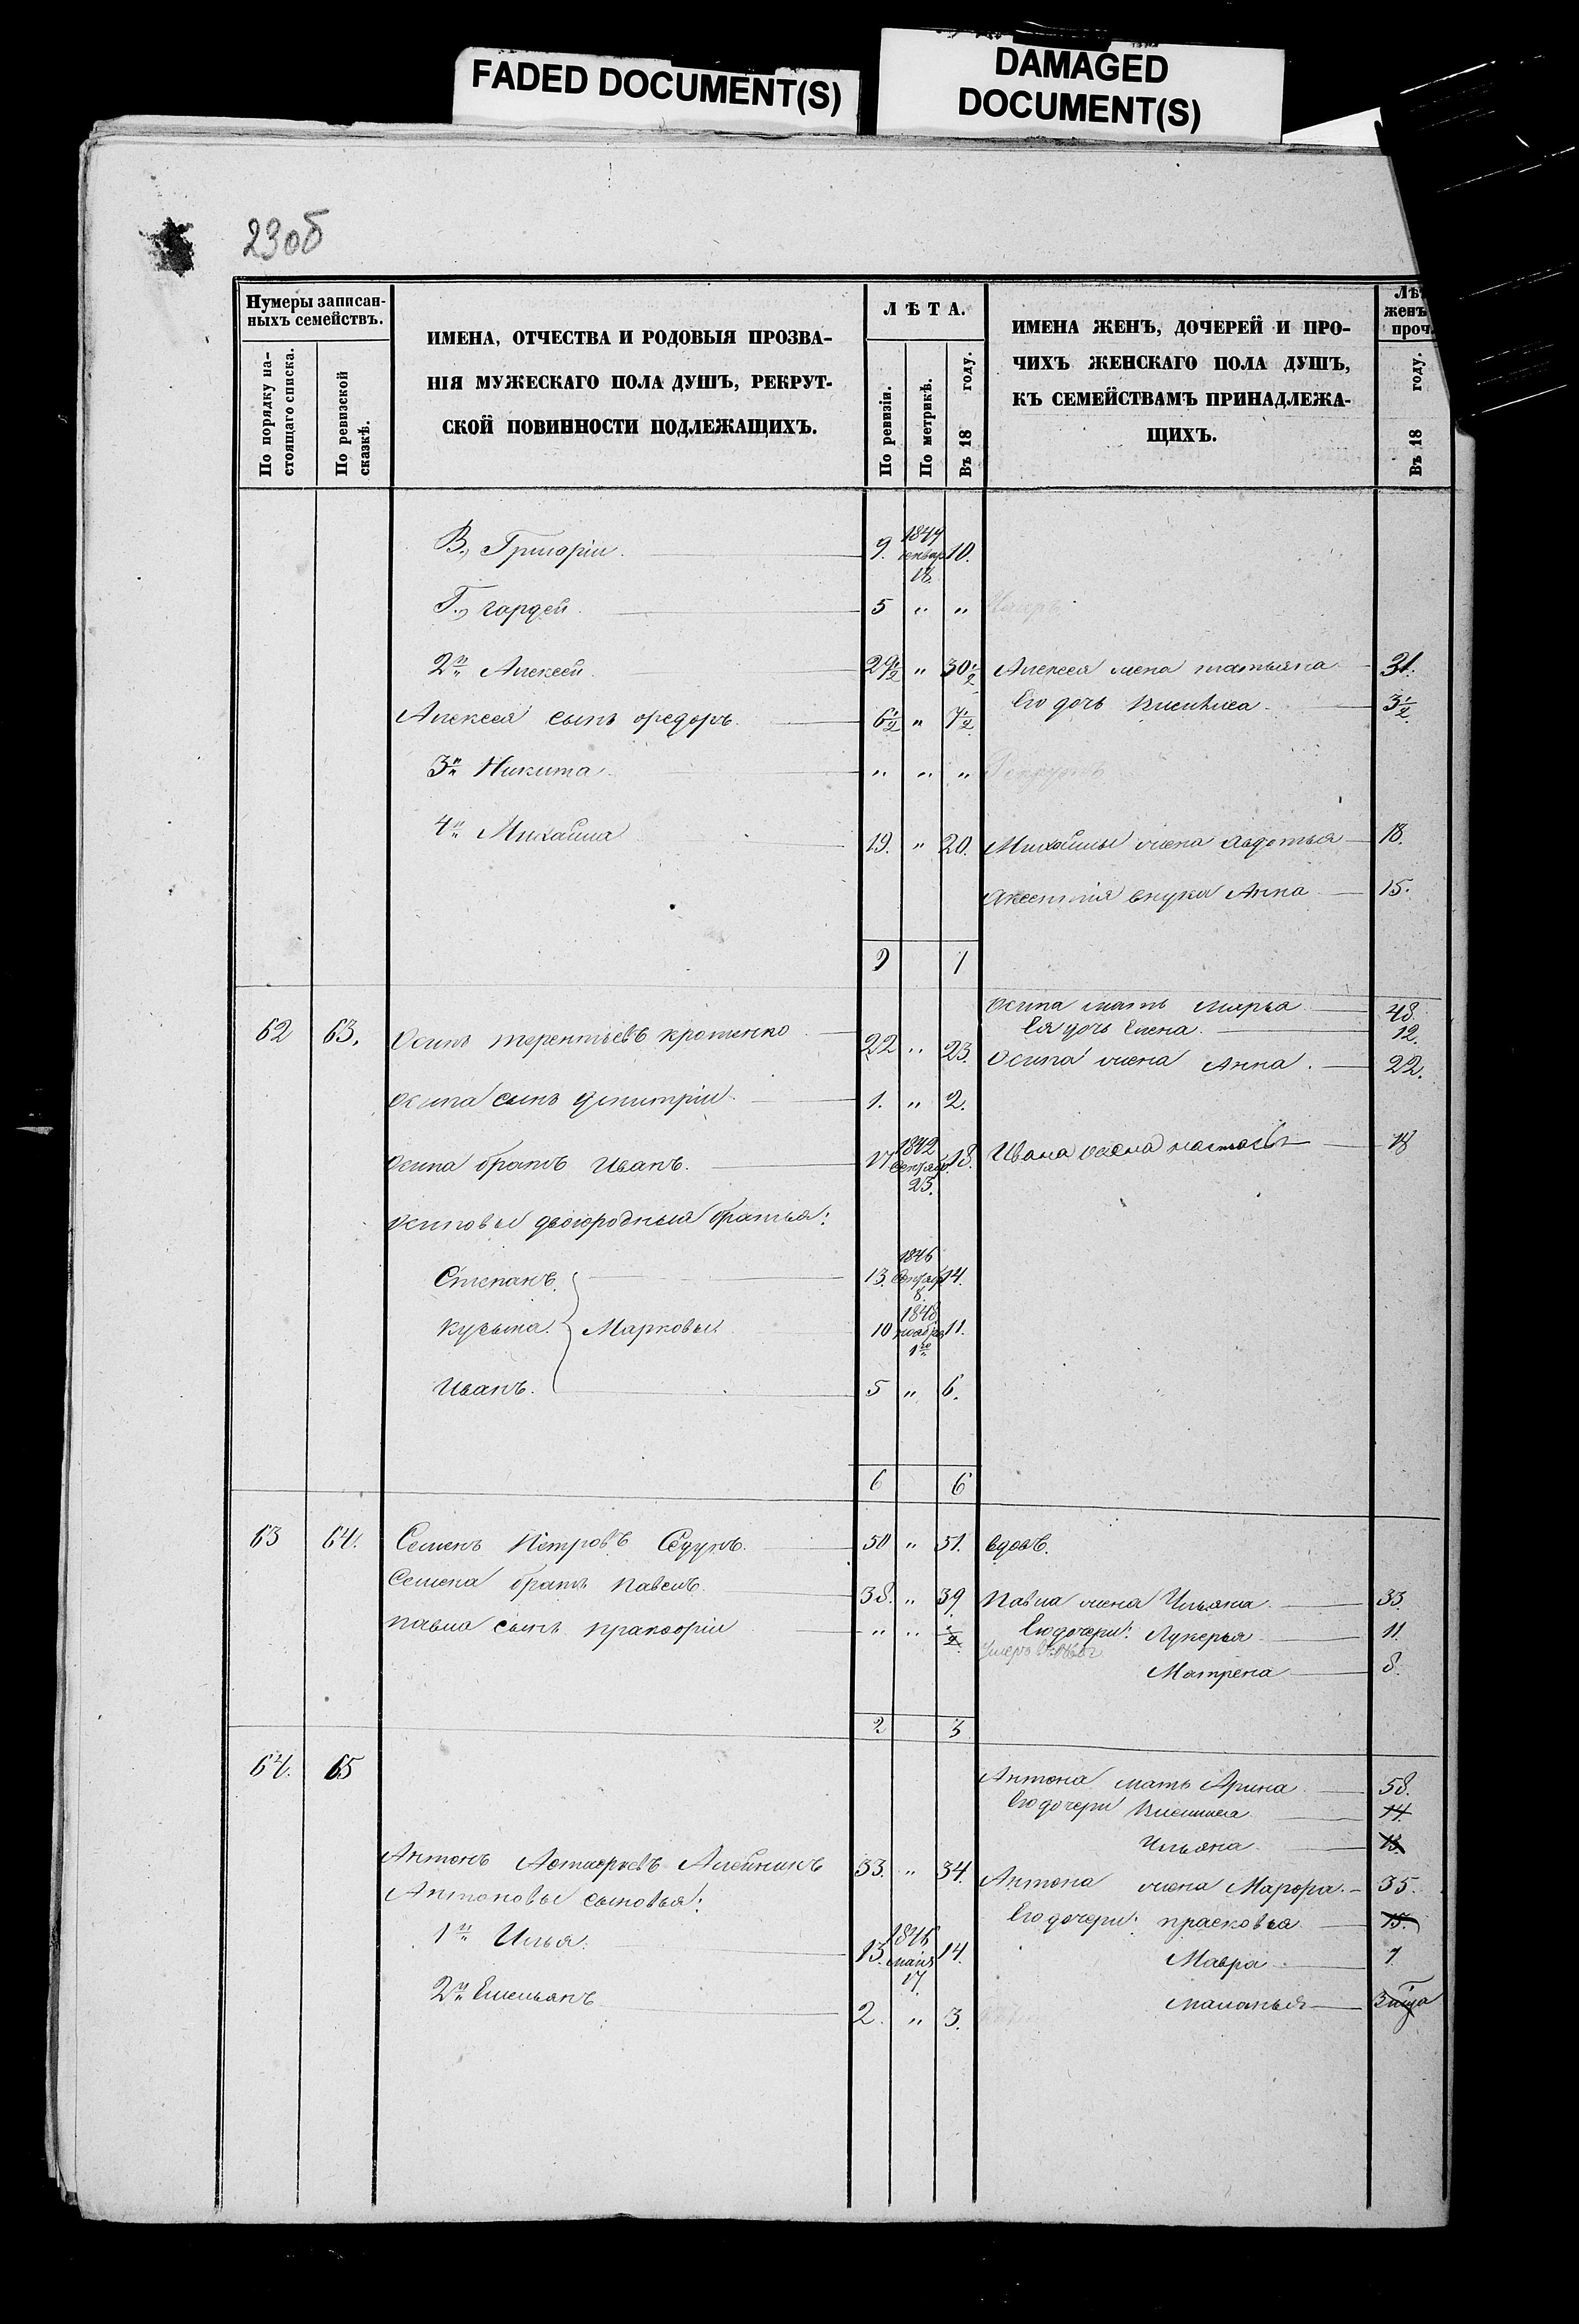 FADED DOCUMENT(S)
DAMAGED
DOCUMENT(S)
23об
Нумеры записан-
ныхъ семействъ.
По порядку на-
стоящаго списка.
По ревизской
сказкѣ.
ИМЕНА, ОТЧЕСТВА И РОДОВЫЯ ПРОЗВА-
НІЯ МУЖЕСКАГО ПОЛА ДУШЪ, РЕКРУТ-
СКОЙ ПОВИННОСТИ ПОДЛЕЖАЩИХЪ.
ЛѢТА.
По ревизіи.
По метрикѣ.
Въ 18 году.
ИМЕНА ЖЕНЪ, ДОЧЕРЕЙ И ПРО-
ЧИХЪ ЖЕНСКАГО ПОЛА ДУШЪ,
КЪ СЕМЕЙСТВАМЪ ПРИНАДЛЕЖА-
ЩИХЪ.
Лѣ
женъ
проч.
Въ 18 году.
В., Григорій. 9. 1849 генвар 18. 10.
Г., гардей. 5 " "
2й Алексей. 29½ " 30½ Алексея жена татьяна 31.
Алексея сынъ федоръ 6½ " 7½ Его дочь 3½
3й Никита " " "
4й Михайла 19. " 20. Михайлы жена авдотья 18.
внука Анна 15.
9 7
Осипа мать Марья 48.
62 63. Осипъ терентьевъ кротенко 22 " 23. Ея дочь Елена. 12.
Осипа жена Анна. 22.
Осипа сынъ дмитрій 1. " 2.
Осипа братъ Иванъ. 17 1842 Сентяб. 23. 18. Ивана жена 18
Осиповы двоюродныя братья:
Степанъ. 13. 1846 Сентяб 8. 14.
Кузьма. Марковы. 10 1848 ноября 1го 11.
Иванъ. 5 " 6.
6 6
63 64. Семенъ Петровъ Седунъ. 50 " 51. вдовъ.
Семена братъ Павелъ. 38. " 39. Павла жена Ульяна 33
Павла сынъ прокофій " " ½ Его дочери: Лукерья 11.
Матрена 8.
2 3
64. 65 Антона мать Арина 58.
Ею дочери 14
Ульяна 13.
Антонъ Алейникъ 33. " 34. Антона жена Марфа. 35.
Антоновы сыновья: Его дочери: прасковья 15.
1й Илья. 13. 1846 маія 17. 14. Мавра 7
2й Емельянъ 2. " 3. маланья